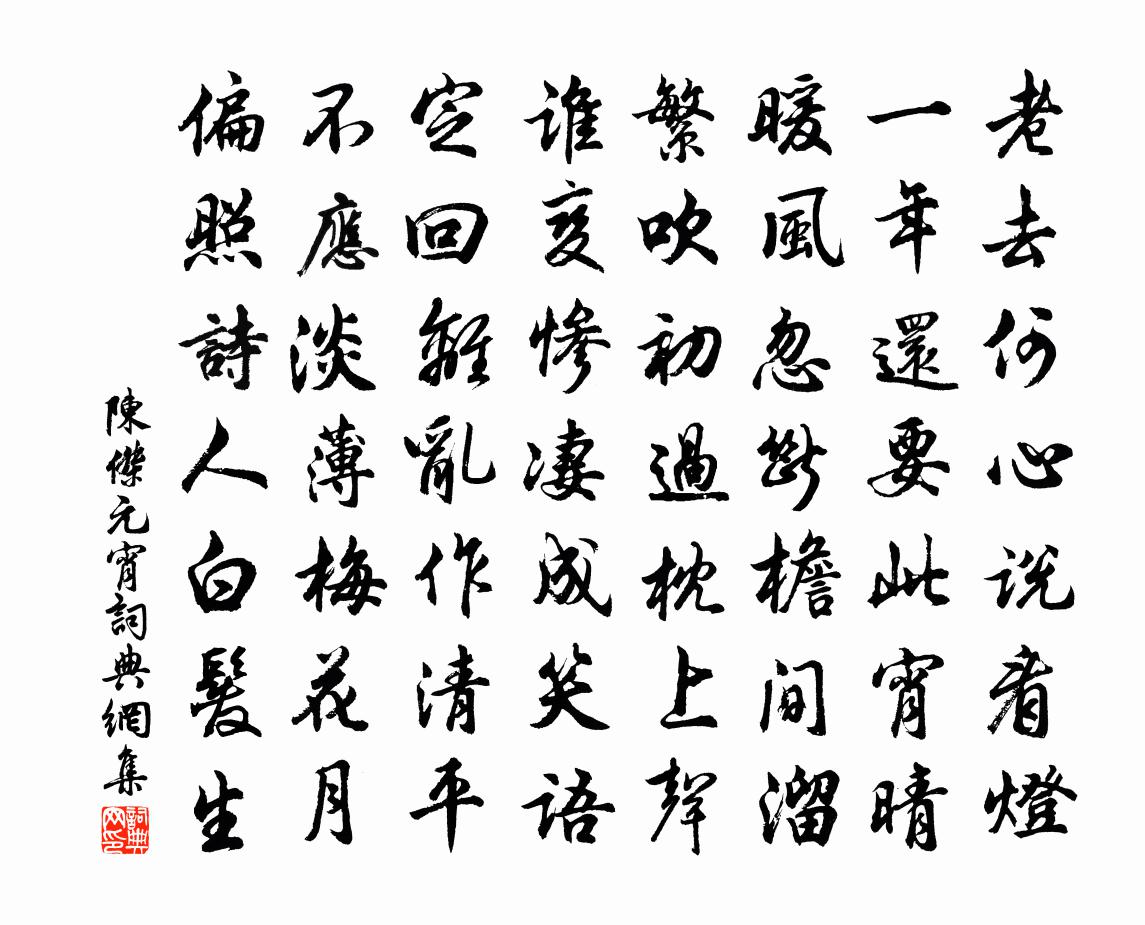 老去何心説看燈
一年還要此宵晴
暖風忽斷檐間溜
繁吹初過枕上聲
誰变惨凄成笑語
定回離亂作清平
不應淡薄梅花月
偏照詩人白髮生
陳傑元宵詞典網集
詞典网印